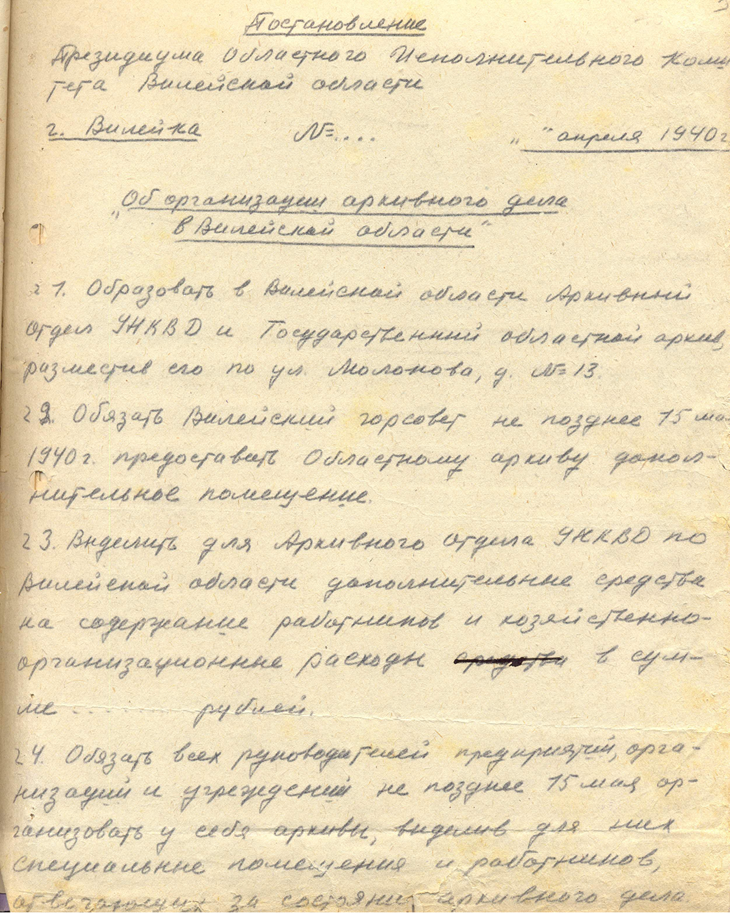 Постановление
Президиума Областного Исполнительного Коми
тета Вилейской области
г. Вилейка № .... „ " апреля 1940г
„Об организации архивного дела
в Вилейской области"
1. Образовать в Вилейской области Архивный
отдел УНКВД и Государственный областной архив,
разместив его по ул. Молокова, д. № 13.
2. Обязать Вилейский горсовет не позднее 15 ма
1940г. предоставать Областному архиву допол-
нительное помещение.
3. Выделить для Архивного отдела УНКВД по
Вилейской области дополнительные средства
на содержание работников и хозяйственно-
организационные расходы средства в сум-
ме .... рублей.
4. Обязать всех руководителей предприятий, орга-
низаций и учреждений не позднее 15 мая ор-
ганизовать у себя архивы, выделив для них
специальные помещения и работников,
отвечающих за состояние архивного дела.